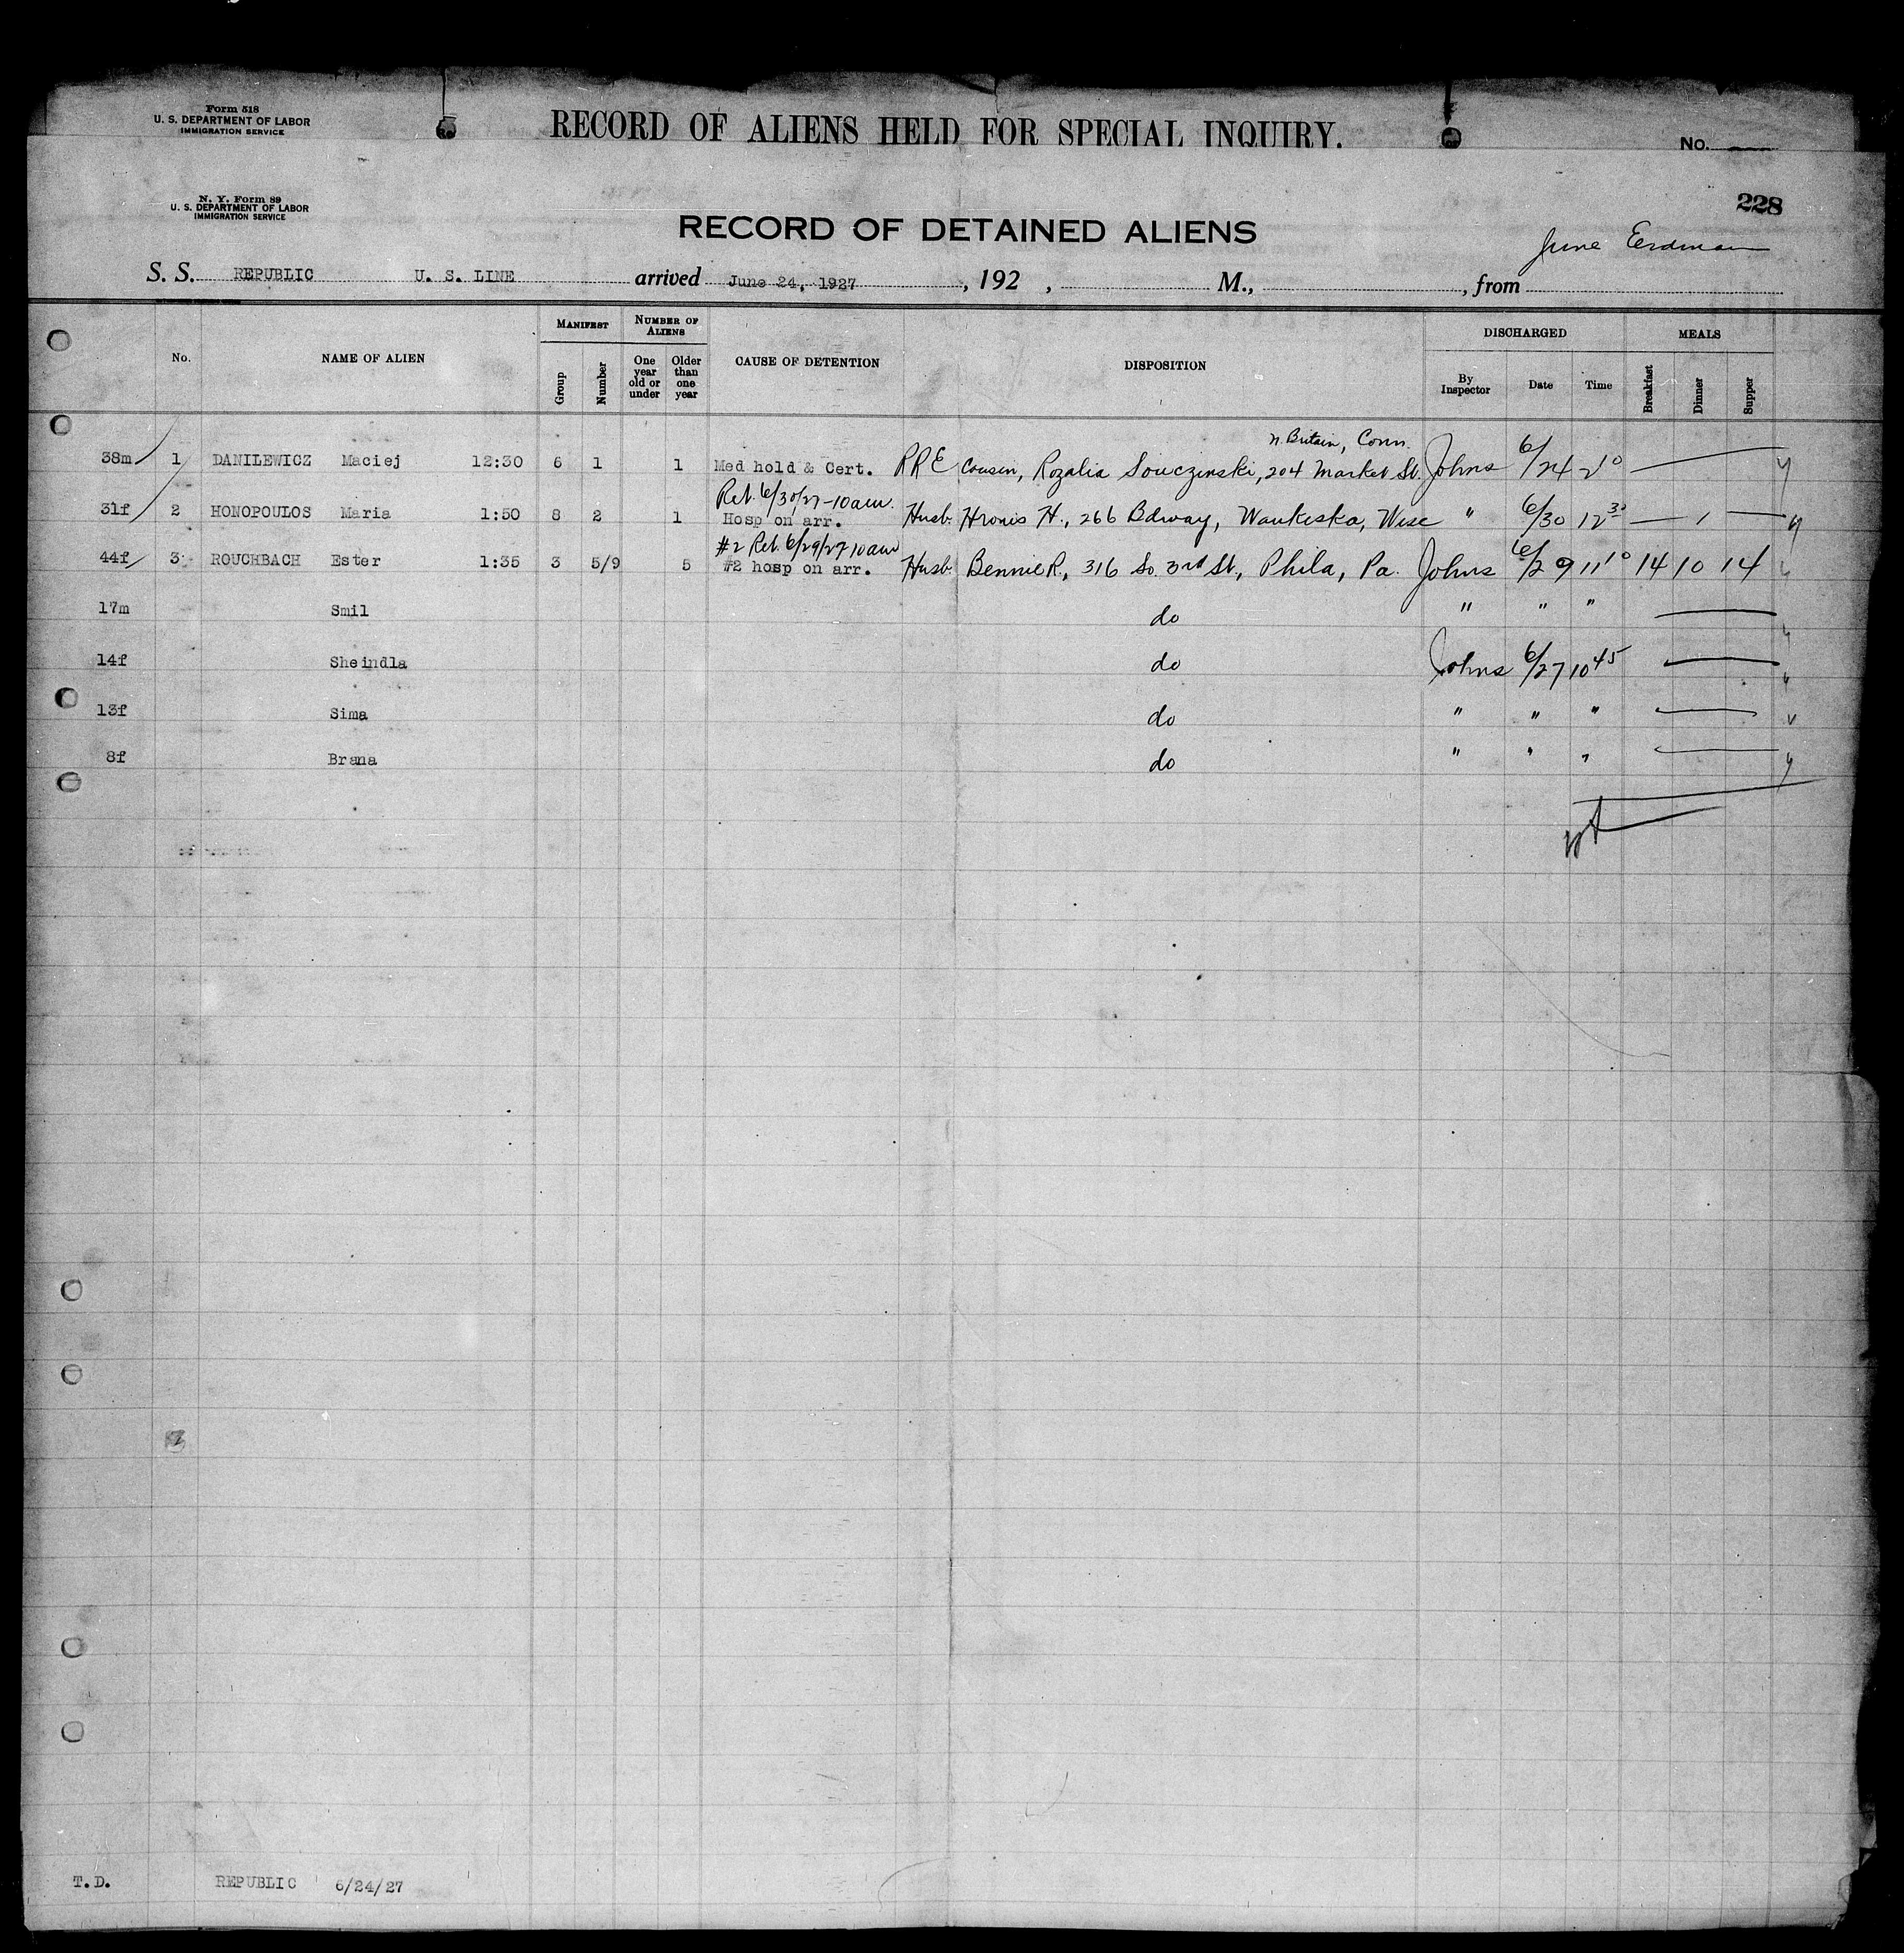 Form 518
U. S. DEPARTMENT OF LABOR
IMMIGRATION SERVICE
RECORD OF ALIENS HELD FOR SPECIAL INQUIRY.
No.
N. Y. Form 89
U. S. DEPARTMENT OF LABOR
IMMIGRATION SERVICE
228
RECORD OF DETAINED ALIENS
June Erdman
S. S. REPUBLIC U. S. LINE arrived June 24, 1927, 192 , M., , from
No. NAME OF ALIEN MANIFEST Group Number NUMBER OF ALIENS One year old or under Older than one year CAUSE OF DETENTION DISPOSITION DISCHARGED By Inspector Date Time MEALS Breakfast Dinner Supper
N. Britain, Conn.
38m 1 DANILEWICZ Maciej 12:30 6 1 1 Med hold & Cert. RRE Cousin, Rozalia Souczinski, 204 Market St. Johns 6/24 2 10
Ret. 6/30/27-10am.
31f 2 HONOPOULOS Maria 1:50 8 2 1 Hosp on arr. Husb. Hronis H., 266 Bdway, Waukeska, Wisc " 6/30 12 30 — 1 —
#2 Ret. 6/29/27 10am
44f 3 ROUCHBACH Ester 1:35 3 5/9 5 #2 hosp on arr. Husb. Bennie R., 316 So. 3rd St., Phila, Pa. Johns 6/29 11 10 14 10 14
17m Smil do " " "
14f Sheindla do Johns 6/27 10 45
13f Sima do " " "
8f Brana do " " "
T.D. REPUBLIC 6/24/27